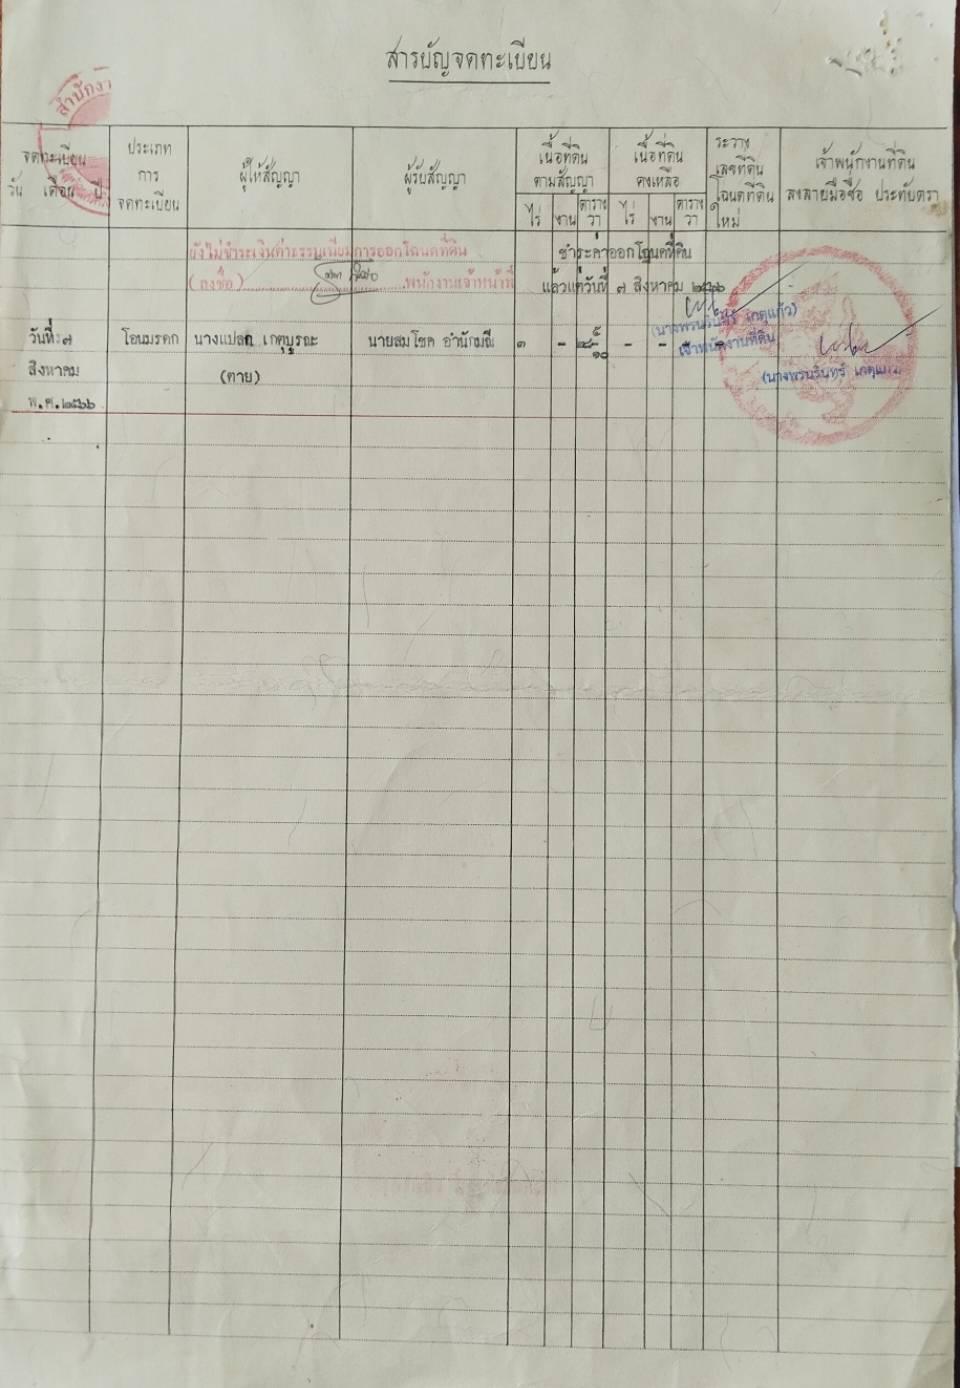 สารบัญจดทะเบียน
สำนักงา
จดทะเบียน
วัน เดือน ปี
ประเภท
การ
จดทะเบียน
ผู้ให้สัญญา
ผู้รับสัญญา
เนื้อที่ดิน
ตามสัญญา
ไร่ งาน ตาราง
วา
เนื้อที่ดิน
คงเหลือ
ไร่ งาน ตาราง
วา
ระวาง
เลขที่ดิน
โฉนดที่ดิน
ใหม่
เจ้าพนักงานที่ดิน
ลงลายมือชื่อ ประทับตรา
ยังไม่ชำระเงินค่าธรรมเนียมการออกโฉนดที่ดิน
(ลงชื่อ) พนักงานเจ้าหน้าที่
ชำระค่าออกโฉนดที่ดิน
แล้วแต่วันที่ ๗ สิงหาคม ๒๕๖๖
(นางพรนรินทร์ เกตุแก้ว)
เจ้าพนักงานที่ดิน
วันที่ ๗ โอนมรดก นางแปลก เกตุบูรณะ นายสมโชค ๓ - ๘๕ ๕/๑๐ - -
สิงหาคม (ตาย)
พ.ศ.๒๕๖๖
(นางพรนรินทร์ เกตุแก้ว)